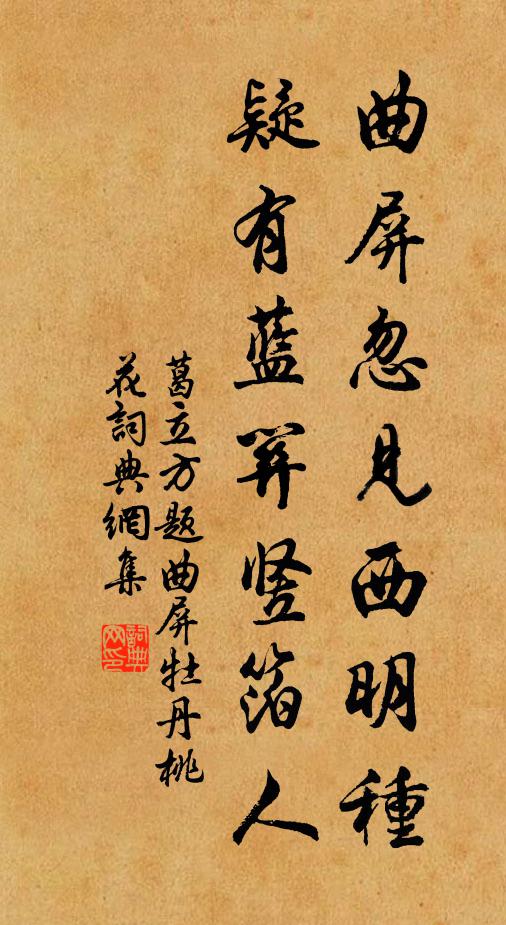 曲屏忽見西明種
疑有藍笄竪箔人
葛立方題曲屏牡丹桃
花詞典網集
詞典網印